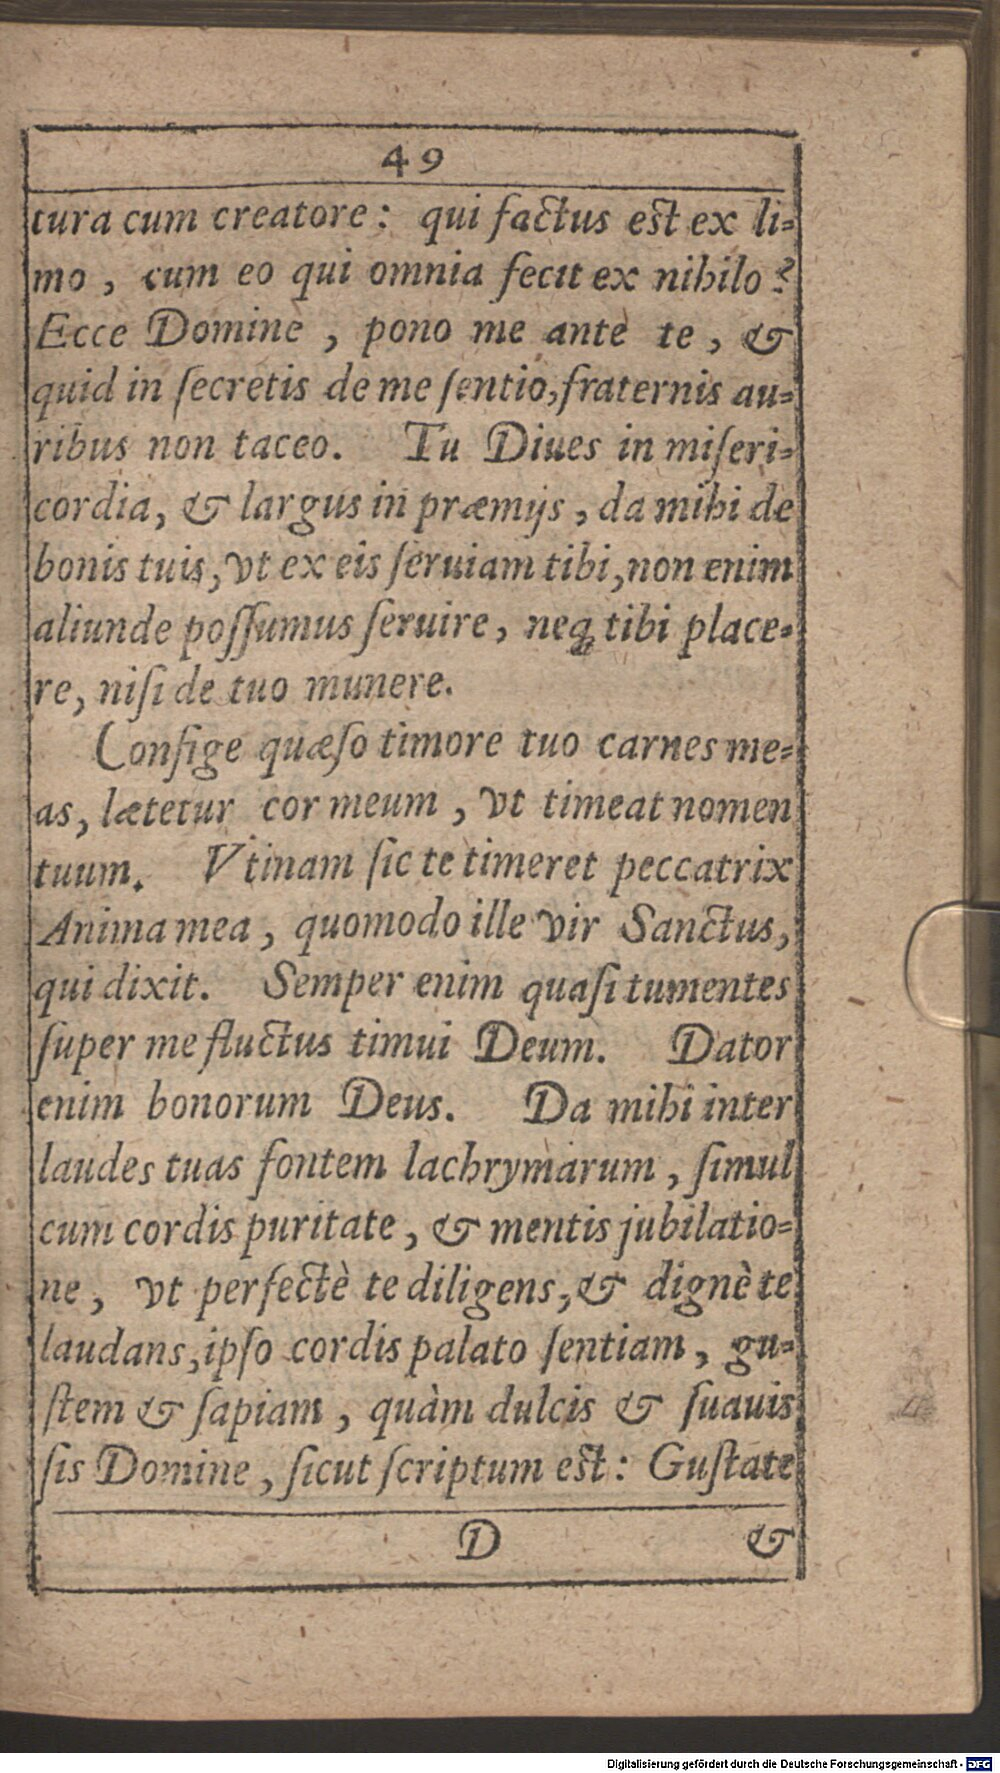 49
tura cum creatore: qui factus est ex li-
mo, cum eo qui omnia fecit ex nihilo?
Ecce Domine, pono me ante te, &
quid in ſecretis de me ſentio, fraternis au-
ribus non taceo. Tu Diues in miſeri-
cordia, & largus in præmijs, da mihi de
bonis tuis, vt ex eis ſeruiam tibi, non enim
aliunde poſſumus ſeruire, neq; tibi place-
re, niſi de tuo munere.
Confige quæſo timore tuo carnes me-
as, lætetur cor meum, vt timeat nomen
tuum. Vtinam ſic te timeret peccatrix
Anima mea, quomodo ille vir Sanctus,
qui dixit. Semper enim quaſi tumentes
ſuper me fluctus timui Deum. Dator
enim bonorum Deus. Da mihi inter
laudes tuas fontem lachrymarum, ſimul
cum cordis puritate, & mentis jubilatio-
ne, vt perfectè te diligens, & dignè te
laudans, ipſo cordis palato ſentiam, gu-
ſtem & ſapiam, quàm dulcis & ſuauis
ſis Domine, ſicut ſcriptum est: Guſtate
D &
Digitalisierung gefördert durch die Deutsche Forschungsgemeinschaft - DFG